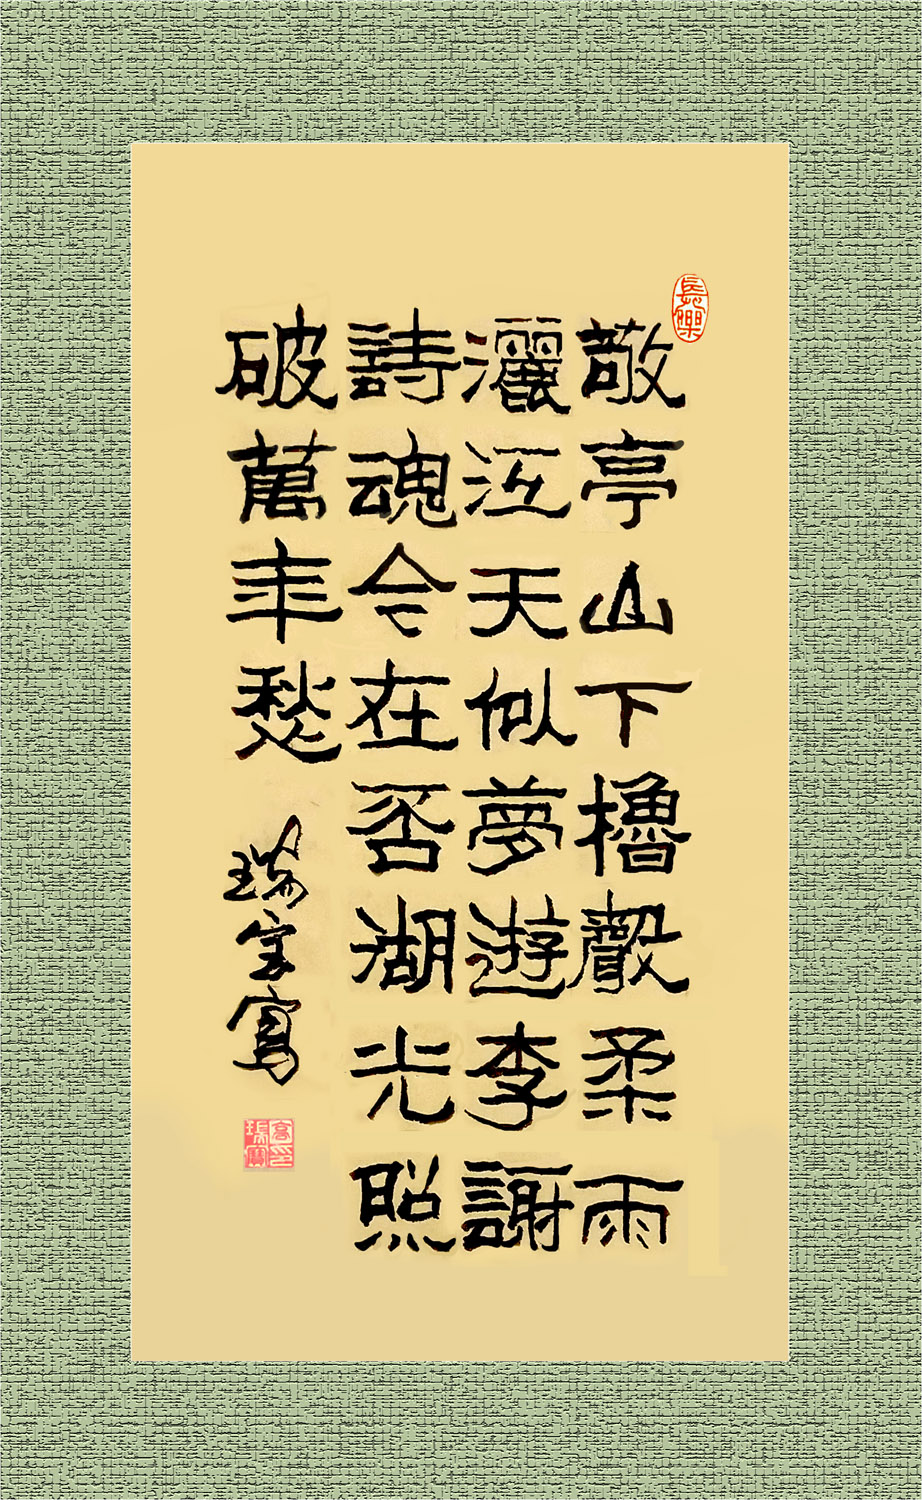 敬亭山下櫓聲柔雨
灑江天似夢遊李謝
詩魂今在否湖光照
破萬年愁
瑞宝寫
長樂
高印瑞寶